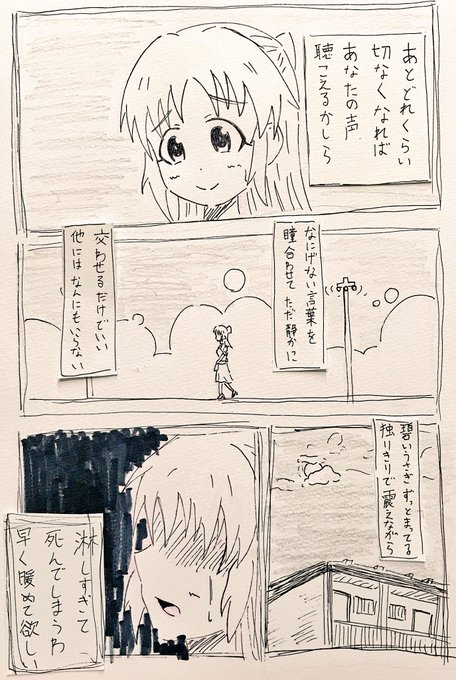 あとどれくらい
切なくなれば
あなたの声
聴こえるかしら
なにげない言葉を
瞳合わせて ただ静かに
交わせるだけでいい
他にはなんにもいらない
碧いうさぎ ずっとまってる
独りきりで震えながら
淋しすぎて
死んでしまうわ
早く暖めて欲しい